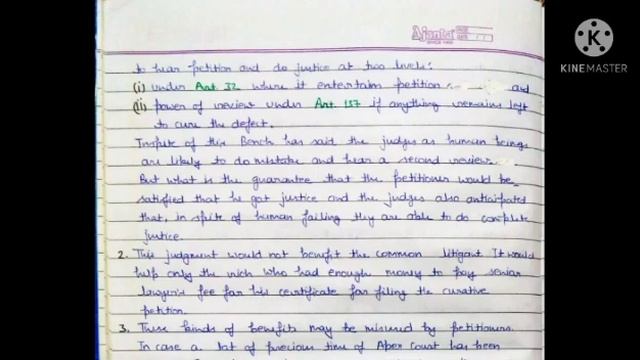 Ajanta
K
KINEMASTER
to hear petition and do justice at two levels:
(i) under Art 32 where it entertain petition and
(ii) power of review under Art 137 if anything remains left
to cure the defect.
Inspite of this Bench has said the judges as human beings
are likely to do mistake and hear a second review.
But what is the guarantee that the petitioner would be
satisfied that he got justice and the judges also anticipated
that, in spite of human failing they are able to do complete
justice.
2. This judgment would not benefit the common litigant It would
help only the rich who had enough money to pay senior
lawyer's fee for his certificate for filing the curative
petition.
3. These kinds of benefits may be misused by petitioners.
In case a lot of precious time of Apex Court has been